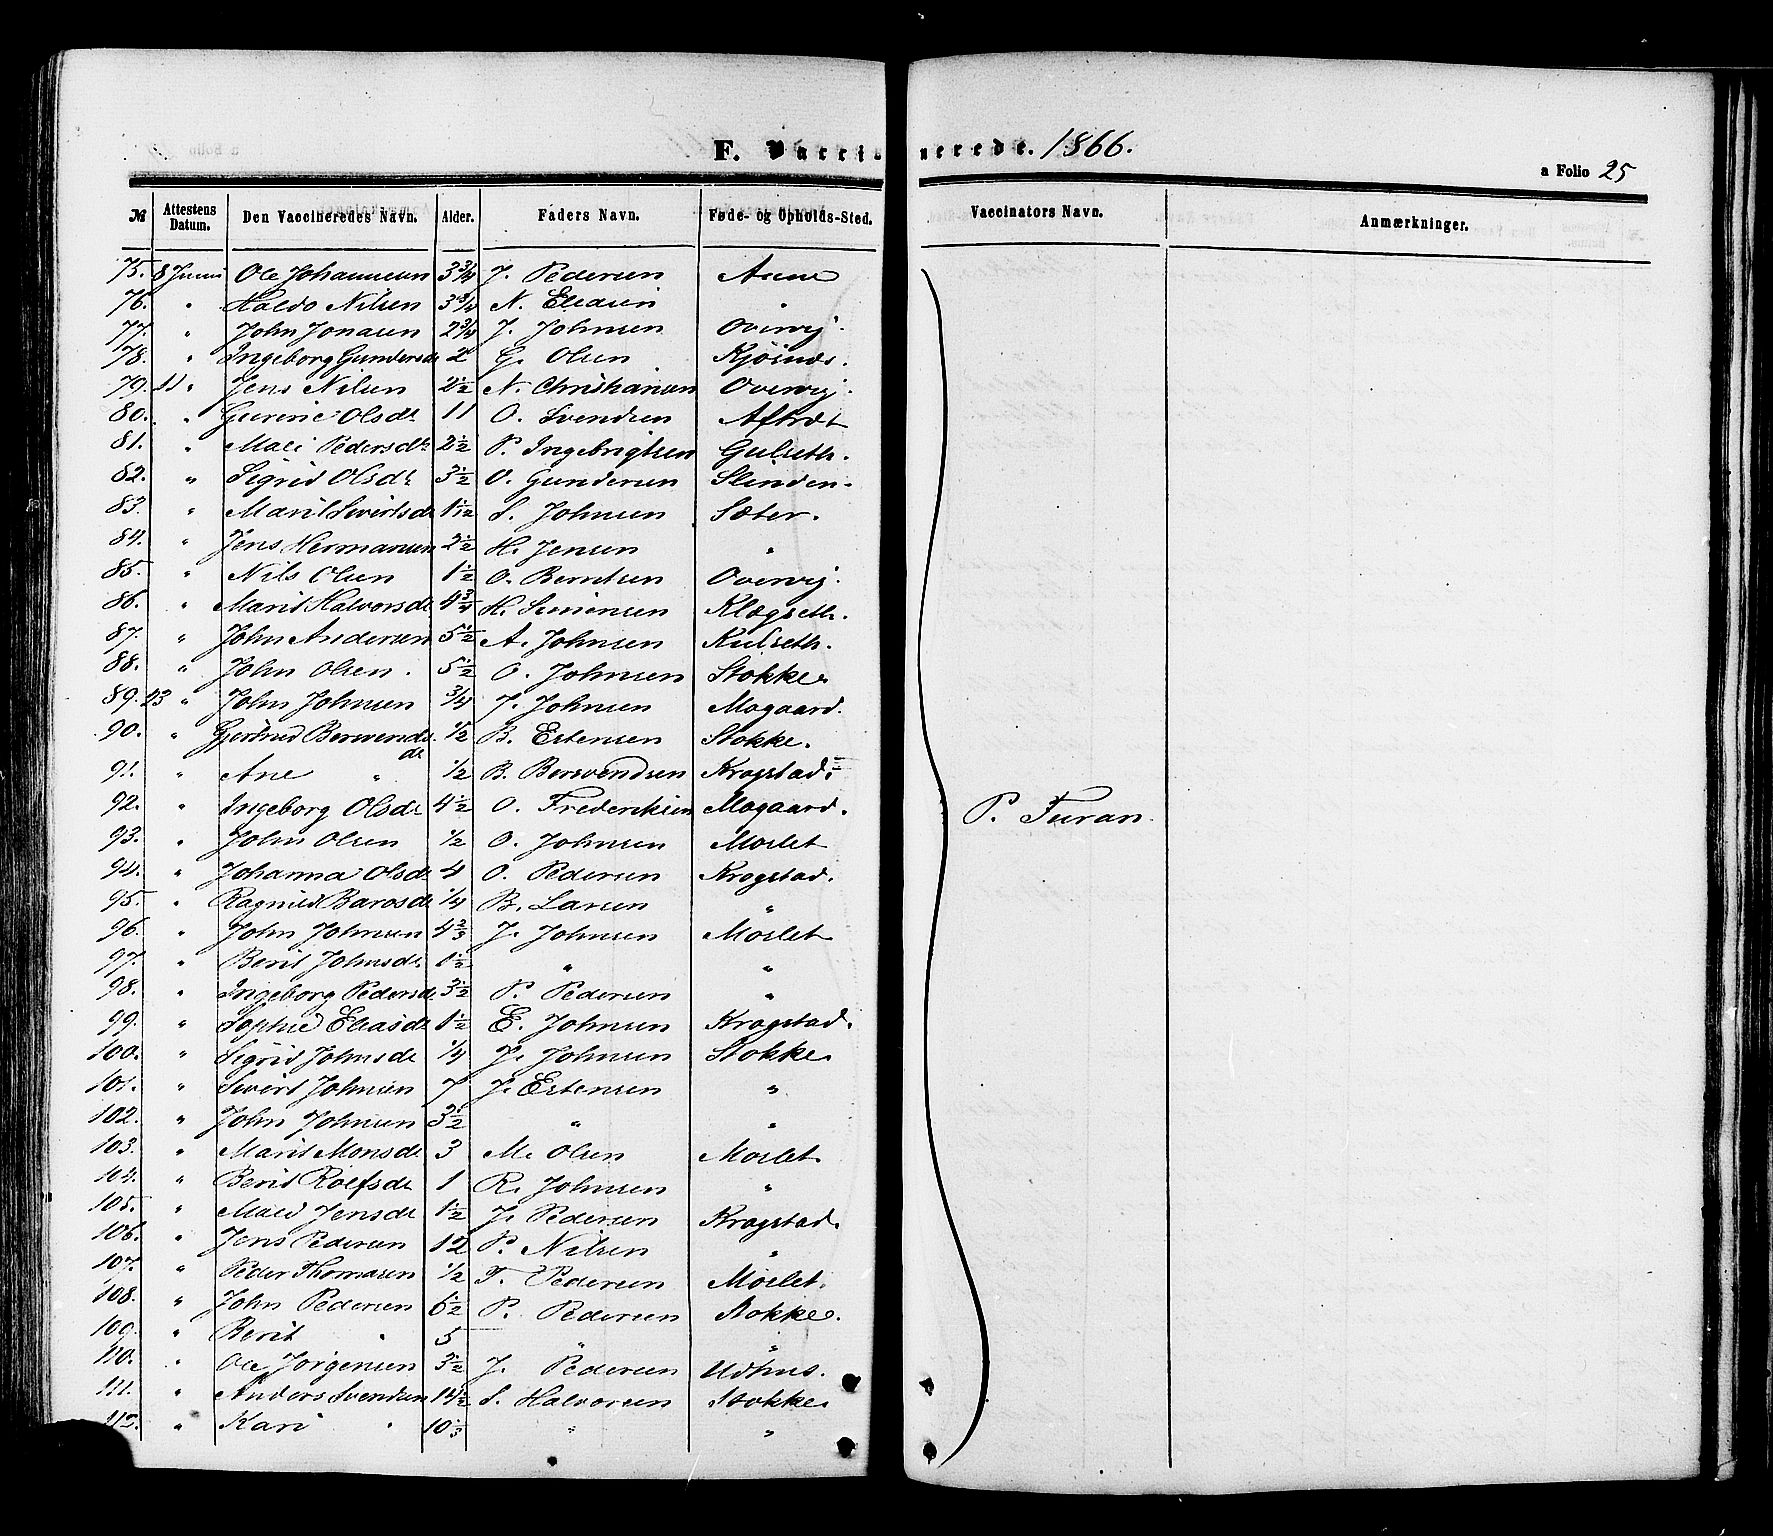 F. Vaccinerede. 1866.
a Folio 25
№ Attestens Datum. Den Vaccineredes Navn. Alder. Faders Navn. Føde- og Opholds-Sted. Vaccinators Navn. Anmærkninger.
75. 8 Juni Ole Johannesen 3 3/4 J. Pedersen Aune
76. " Haldo Nilsen 3 3/4 N. Eliasen "
77. " John Jonasen 2 3/4 J. Johnsen Overvij.
78. " Ingeborg Gundersd 2 G. Olsen Kjösnæs.
79. 11 " Jens Nilsen 2 1/2 N. Christiansen Overvij.
80. " Gurine Olsdt 11 O. Svendsen Aftret
81. " Mali Pedersdt 2 1/2 P. Ingebrigtsen Gulseth.
82. " Sigrid Olsdt 3 1/2 O. Gundersen Slinden.
83. " Marit Sivertsdt 1 1/12 S. Johnsen Sæter.
84. " Jens Hermansen 2 1/2 H. Jensen "
85. " Nils Olsen 1 1/2 O. Berntsen Overvij.
86. " Marit Halvorsdt 4 3/4 H. Simensen Klægseth.
87. " John Andersen 5 1/2 A. Johnsen Kulseth.
88. " John Olsen. 5 1/2 O. Johnsen Stokke.
89. 13 " John Johnsen 3/4 J. Johnsen Mogaard.
90. " Gjertrud Bersvendsdt 1/2 B. Estensen Stokke.
91. " Ane " 1/2 B. Bersvendsen Krogstad.
92. " Ingeborg Olsdt 4 1/2 O. Frederiksen Mogaard.
93. " John Olsen 1/2 O. Johnsen Moslet
94. " Johanna Olsdt 4 O. Pedersen Krogstad.
95. " Ragnild Barosdt 1/4 B. Larsen "
96. " John Johnsen 4 2/3 J. Johnsen Moslet
97. " Berit Johnsdt. 1 1/2 " "
98. " Ingeborg Pedersdt 3 1/2 P. Pedersen "
99. " Sophie Eliasdt 1 1/2 E. Johnsen Krogstad.
100. " Sigrid Johnsdt 1/4 J. Johnsen Stokke
101. " Sivert Johnsen 7 J. Estensen "
102. " John Johnsen 3 1/2 " "
103. " Marit Monsdt. 3 M. Olsen Moslet
104. " Berit Rolfsdt 1 R. Johnsen "
105. " Mali Jensdt 1 1/2 J. Pedersen Krogstad.
106. " Jens Pedersen 12 P. Nilsen "
107. " Peder Thomasen 1/2 T. Pedersen Moslet.
108. " John Pedersen 6 1/2 P. Pedersen Stokke.
109. " Berit " 5 " "
110. " Ole Jörgensen 3 1/2 J. Pedersen Udhus.
111. " Anders Svendsen 14 1/2 S. Halvorsen Stokke.
112. " Kari " 10 1/3 " "
P. Turan.